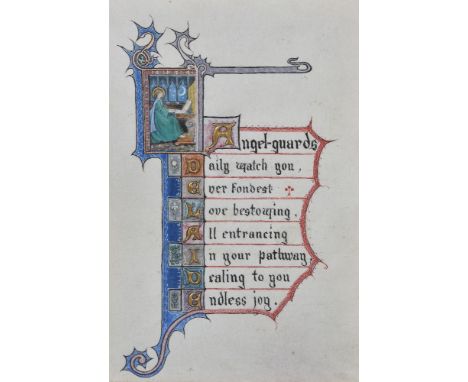 Angel-guards
Daily watch you,
Ever Fondest
Love bestowing,
All entrancing
In your pathway
Dealing to you
Endless joy.